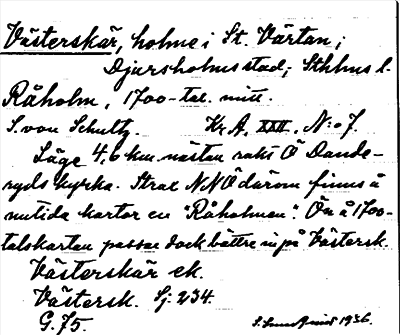 Västerskär, holme i St. Värtan,
Djursholms stad, Sthlms l.
Råholm, 1700-tal. mitt.
S. von Schultz. Kr. A. XXII. N:o 7.
Läge 4,6 km. nästan rakt Ö Dande-
ryds kyrka. Strax NNÖ därom finns å
nutida kartor en "Råholmen". Ön å 1700-
talskartan passar dock bättre in på Västersk.
Västerskär ek.
Västersk. Sj. 234.
G. 75. 1936.